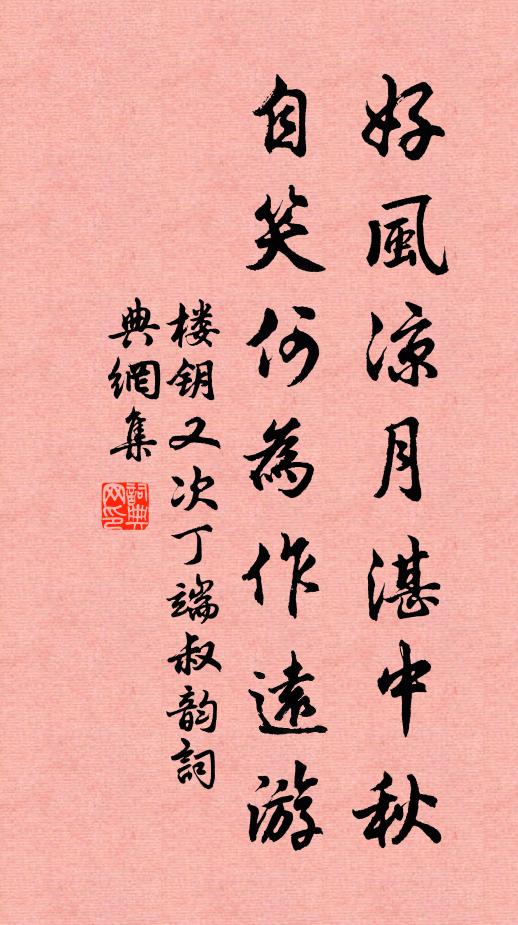 好風凉月湛中秋
自笑何為作遠游
楼钥又次丁端叔韵詞
典網集
詞典
网印